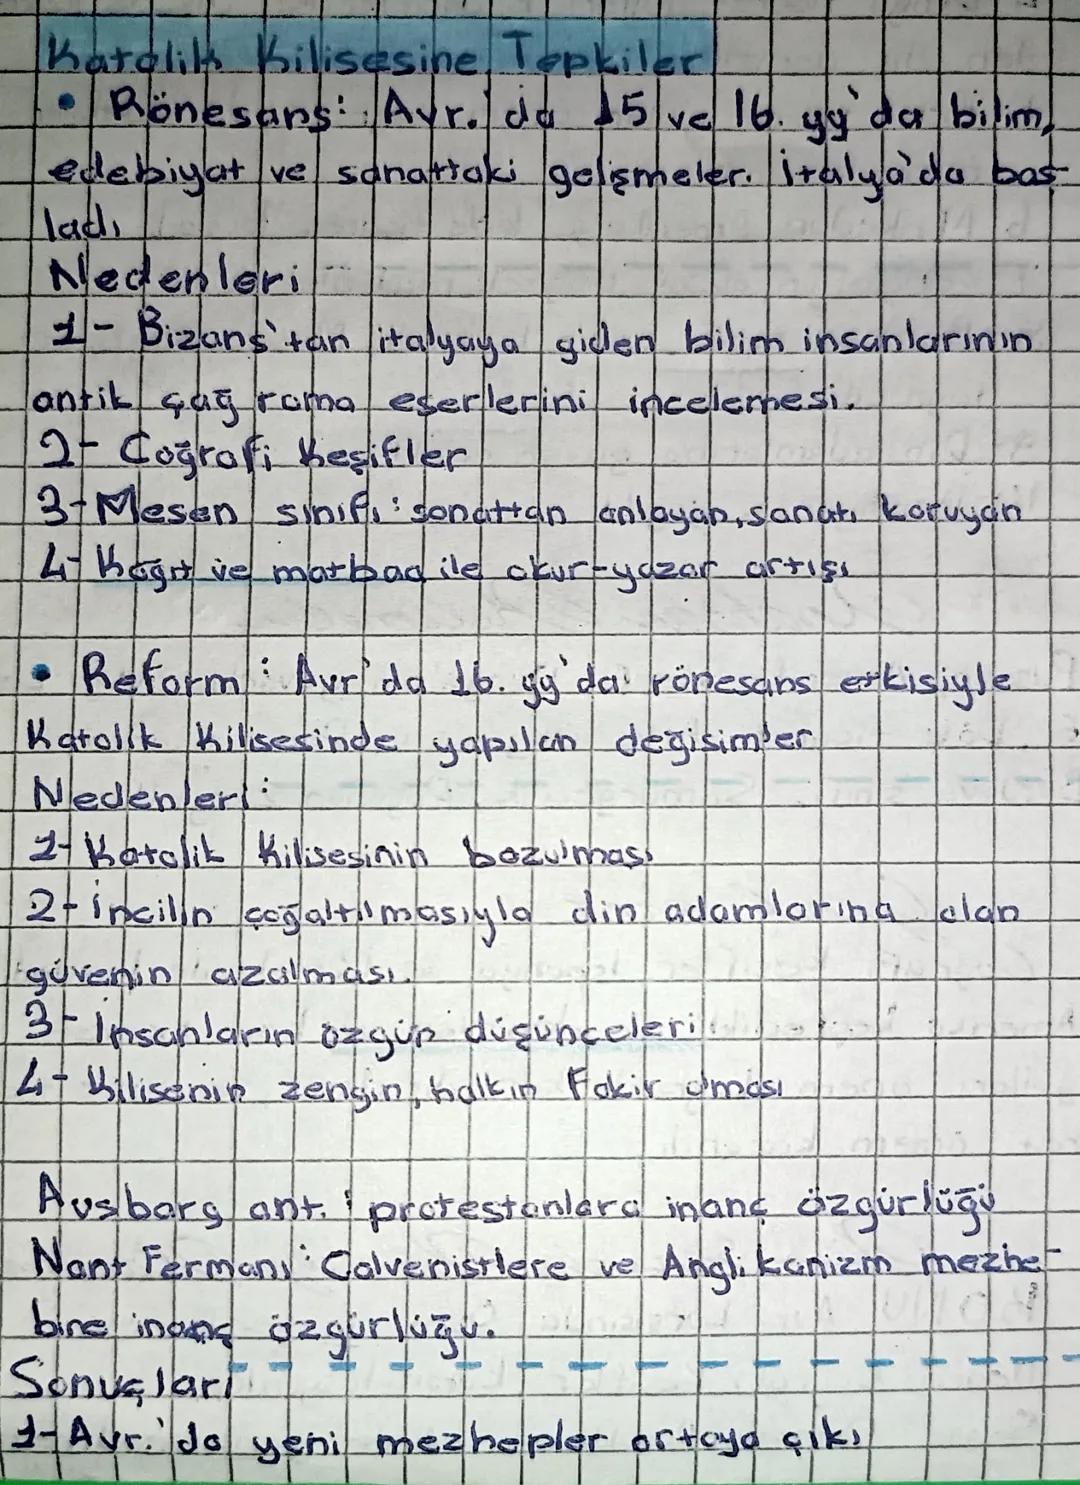 Katolik Kilisesine Tepkiler
• Rönesans: Avr.'da 15 ve 16. yy'da bilim,
edebiyat ve sanattaki gelişmeler. İtalya'da baş-
ladı
Nedenleri
1- Bizans'tan italyaya giden bilim insanlarının
antik çağ roma eserlerini incelemesi.
2- Coğrafi Keşifler
3- Mesen sınıfı: sanattan anlayan, sanatı koruyan
4- Kağıt ve matbaa ile okur-yazar artışı
• Reform: Avr'da 16. yy'da rönesans etkisiyle
Katolik Kilisesinde yapılan değişimler
Nedenleri:
1- Katolik Kilisesinin bozulması
2- İncilin çoğaltılmasıyla din adamlarına olan
güvenin azalması.
3- İnsanların özgün düşünceleri
4- Kilisenin zengin, halkın Fakir olması
Ausbarg ant. : protestanlara inanç özgürlüğü
Nant Fermanı: Calvenistlere ve Anglikanizm mezhe-
bine inanç özgürlüğü.
Sonuçları
1- Avr.'da yeni mezhepler ortaya çıkı